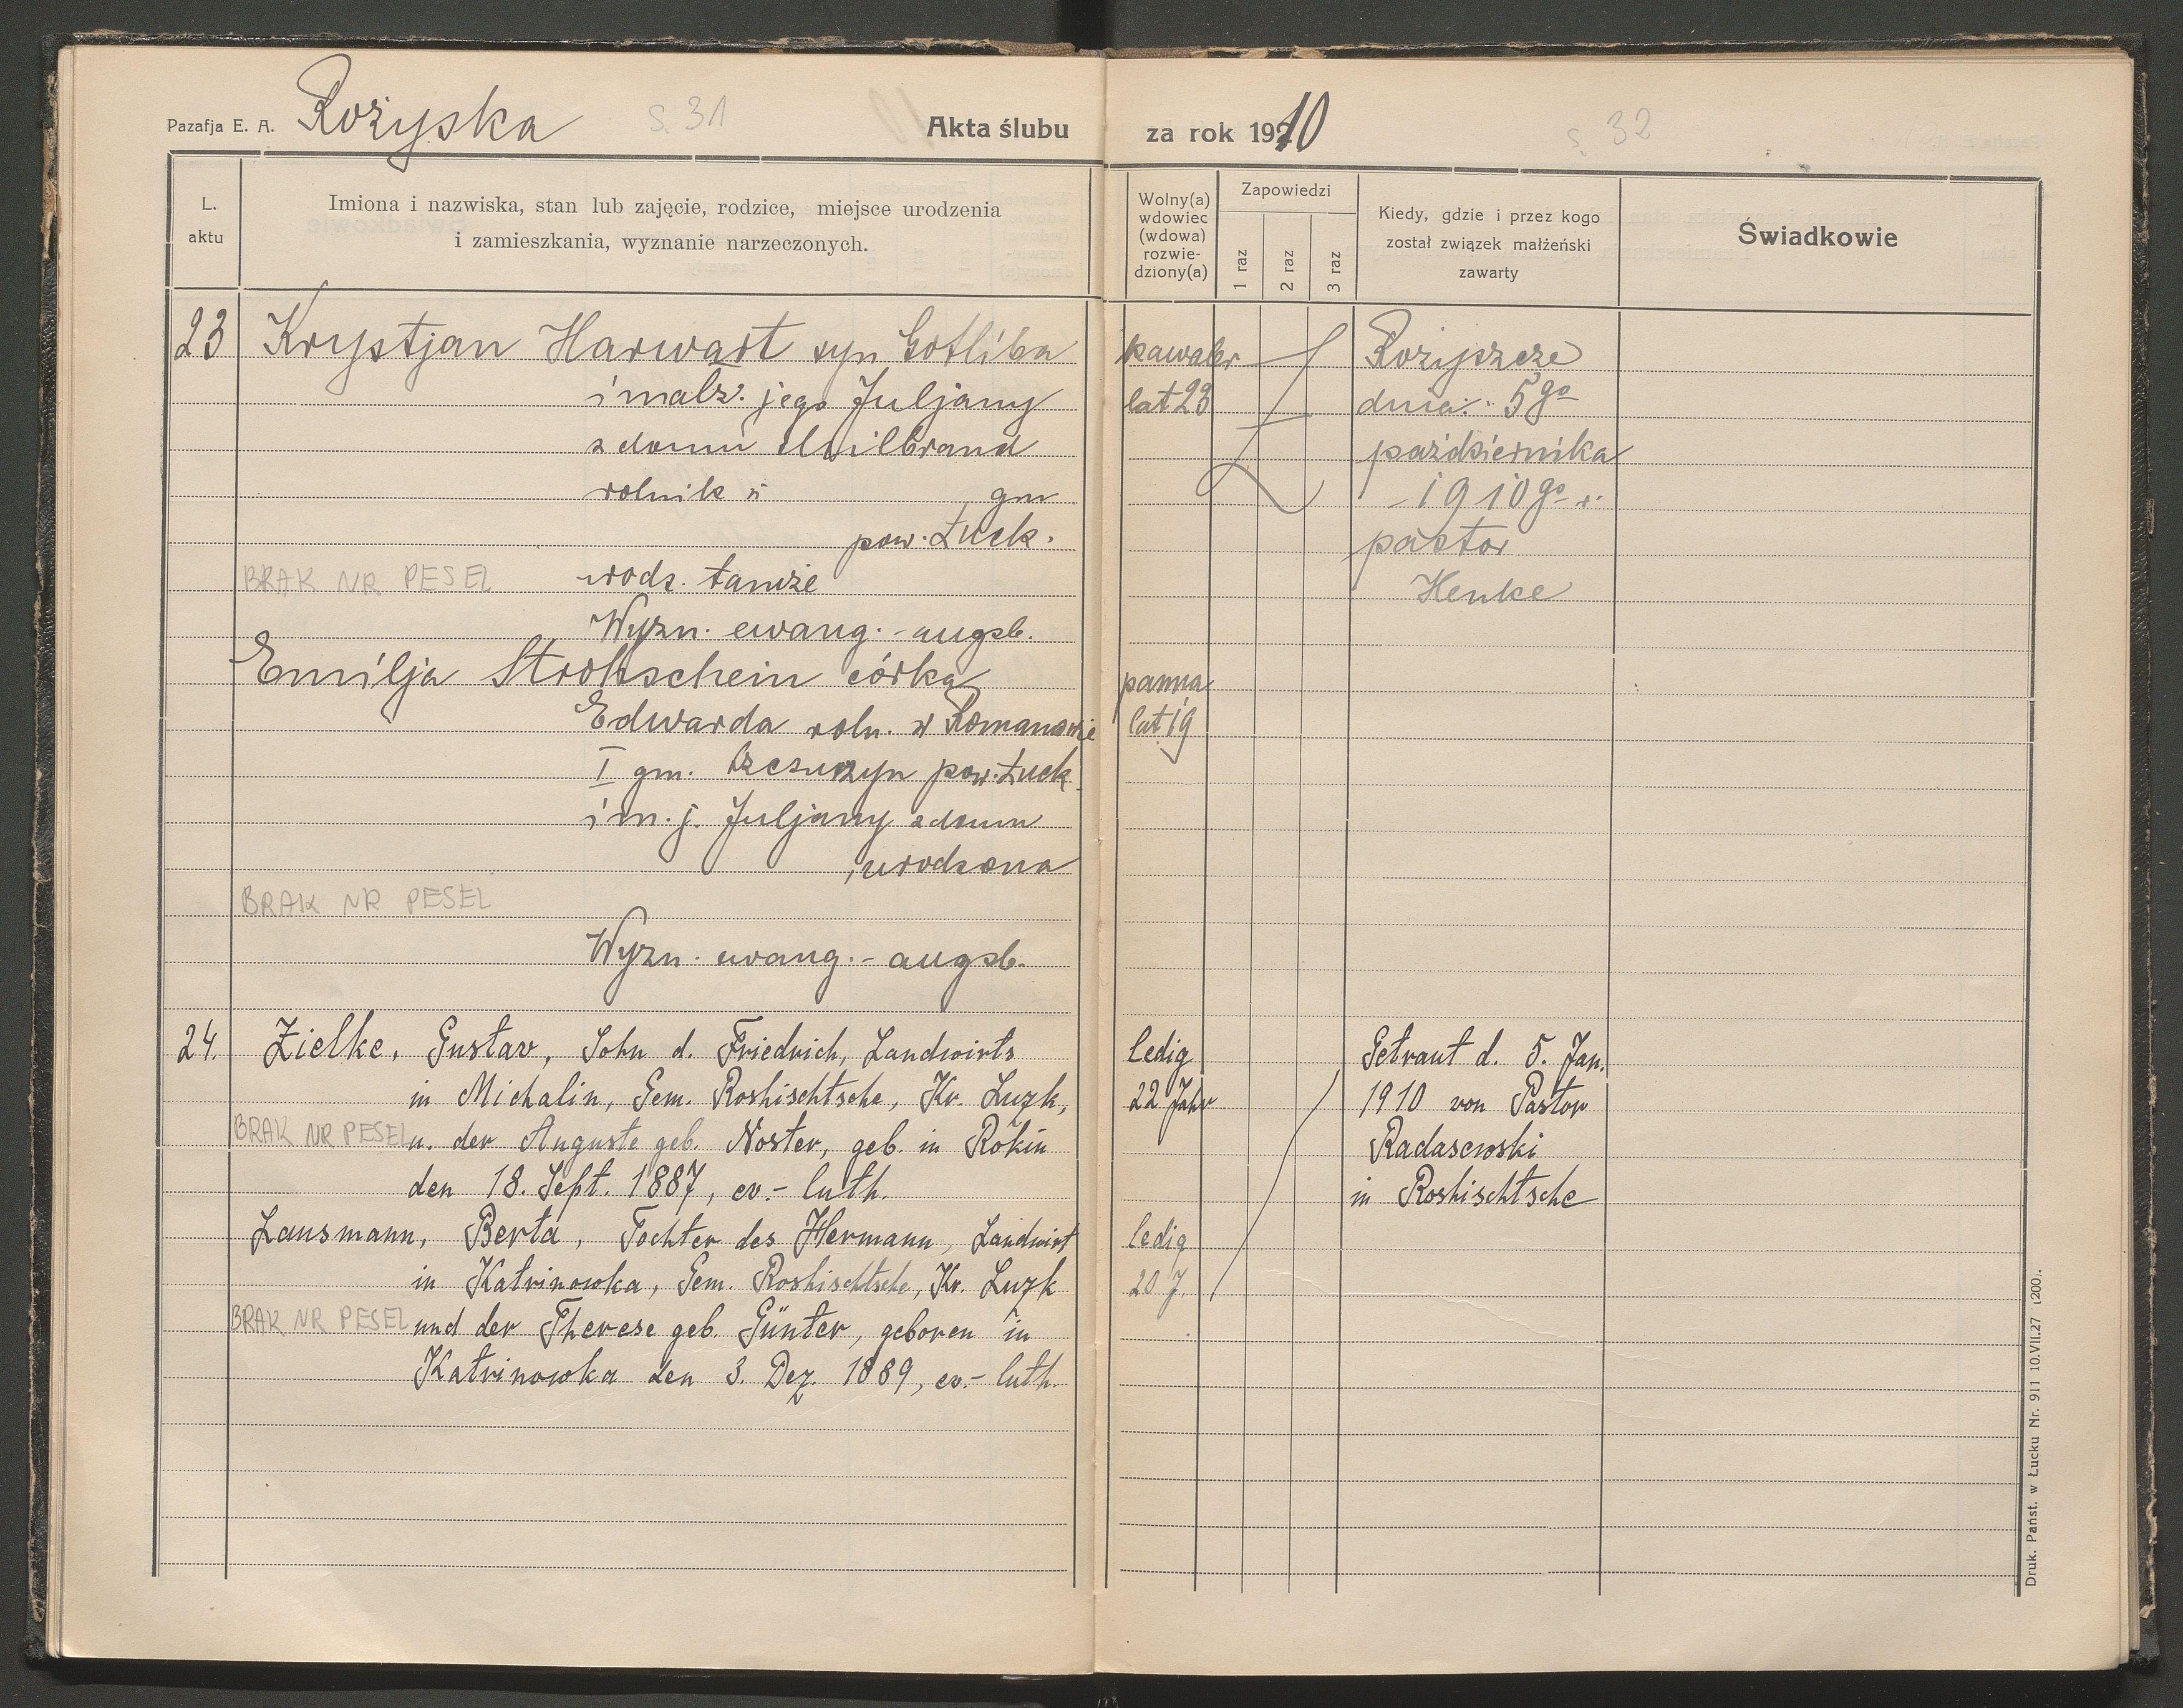 Pazafja E. A. Rożyska s. 31 Akta ślubu
L. aktu
Imiona i nazwiska, stan lub zajęcie, rodzice, miejsce urodzenia
i zamieszkania, wyznanie narzeczonych.
23 Krystjan Harwart syn Gotliba
i małż. jego Juljany
z domu Hilbrand
rolnik w gm
pow. Łuck.
BRAK NR PESEL urodz. tamże
Wyzn. ewang.-augsb.
Emilja Strohschein córka
Edwarda roln. w Romanowie
I gm. pow. Łuck
i m. j. Juljany z domu
, urodzona
BRAK NR PESEL
Wyzn. ewang.-augsb.
24. Zielke, Gustav, Sohn d. Friedrich, Landwirts
in Michalin, Gem. Roshischtsche, Kr. Luzk,
BRAK NR PESEL u. der Auguste geb. Noster, geb. in Rokin
den 18. Sept. 1887, ev.-luth.
Lausmann, Berta, Tochter des Hermann, Landwirt
in Katrinowka, Gem. Roshischtsche, Kr. Luzk
BRAK NR PESEL und der Therese geb. Günter, geboren in
Katrinowka den 3. Dez. 1889, ev.-luth.
za rok 1910 s. 32
Wolny(a)
wdowiec
(wdowa)
rozwie-
dziony(a)
Zapowiedzi
1 raz
2 raz
3 raz
Kiedy, gdzie i przez kogo
został związek małżeński
zawarty
Świadkowie
kawaler
lat 23
Rożyszcze
dnia 5go
października
1910go r.
pastor
Henke
panna
lat 19
ledig
22 Jahr
Getraut d. 5. Jan.
1910 von Pastor
Radasewski
in Roshischtsche
ledig
20 J.
Druk. Państ. w Łucku Nr. 911 10.VII.27 1200.